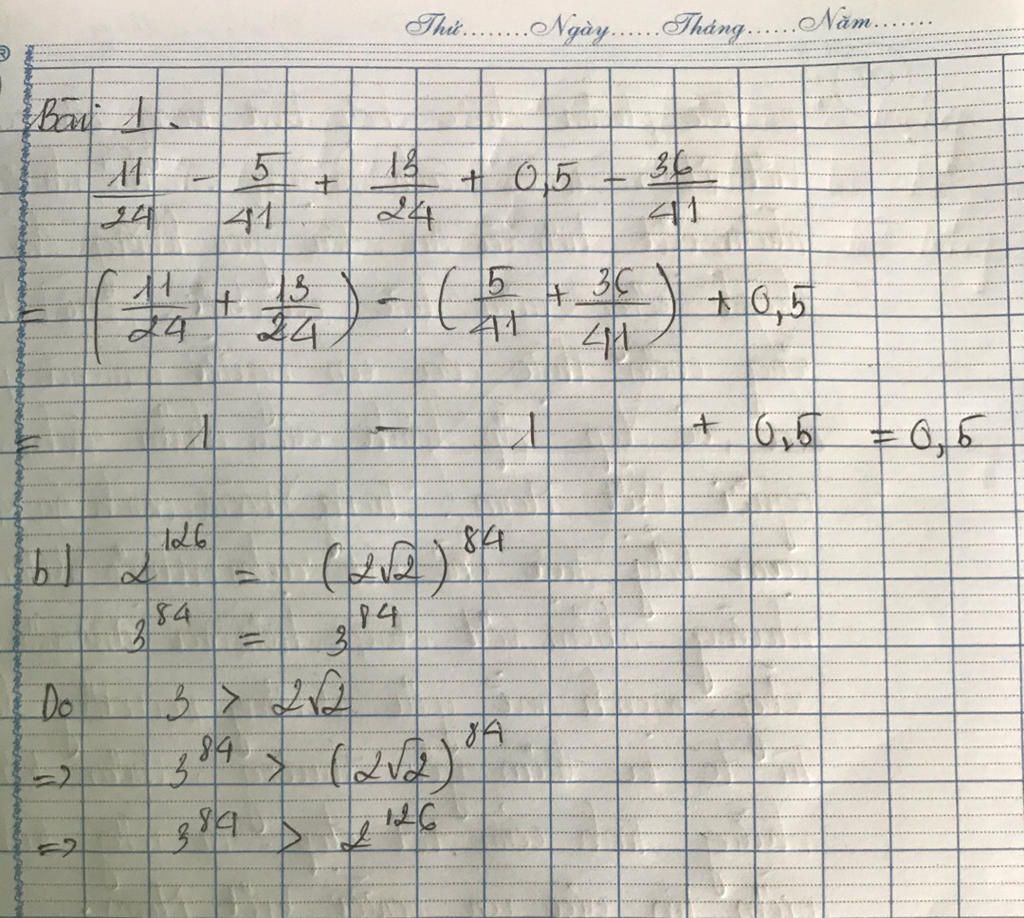 Thứ........Ngày......Tháng......Năm.......
Bài 1.
11/24 - 5/41 + 13/24 + 0,5 - 36/41
= (11/24 + 13/24) - (5/41 + 36/41) + 0,5
= 1 - 1 + 0,5 = 0,5
b) 2^126 = (2√2)^84
3^84 = 3^84
Do 3 > 2√2
=> 3^84 > (2√2)^84
=> 3^84 > 2^126